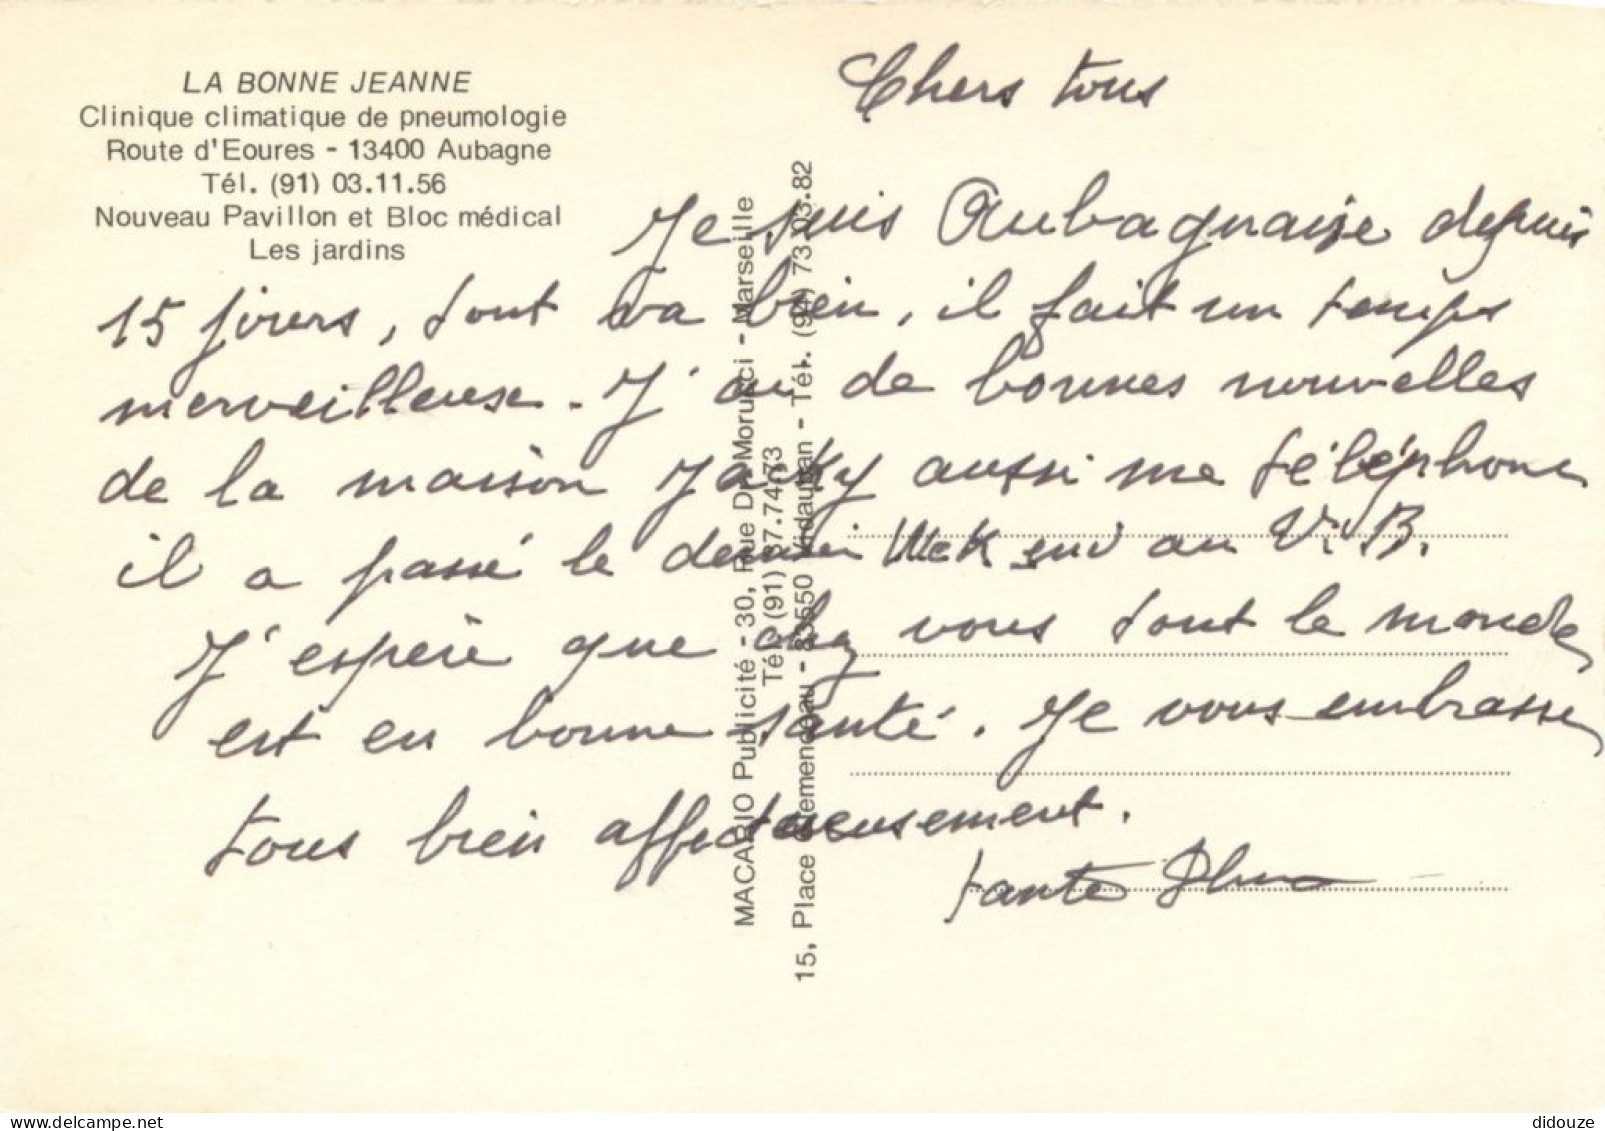 LA BONNE JEANNE
Clinique climatique de pneumologie
Route d'Eoures - 13400 Aubagne
Tél. (91) 03.11.56
Nouveau Pavillon et Bloc médical
Les jardins
Chers tous
Je suis Aubagnaise depuis
15 jours, tout va bien, il fait un temps
merveilleuse. J'ai de bonnes nouvelles
de la maison Jacky aussi me téléphone
il a passé le dernier Week end au V.B.
J'espère que chez vous tout le monde
est en bonne santé. Je vous embrasse
tous bien affectueusement.
tante
MACARIO Publicité - 30, Rue Dr Morucci - Marseille
Tél. (91) 37.74.73
15, Place Clemenceau - 83550 Vidauban - Tél. (94) 73.03.82
didouze